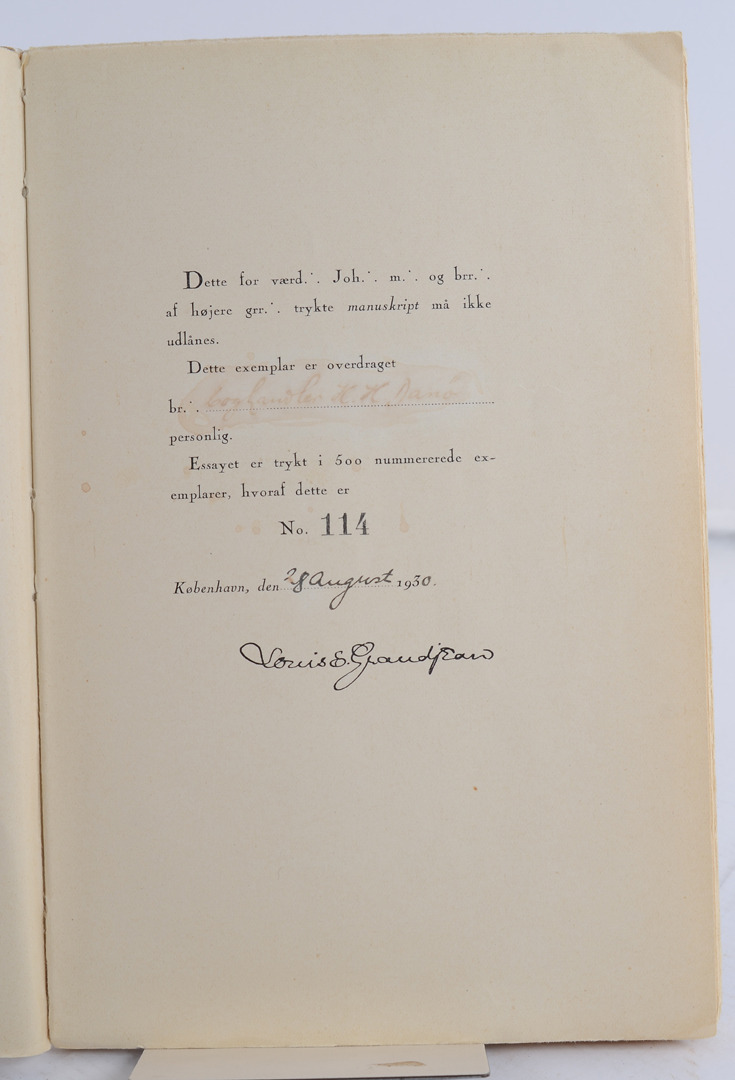 Dette for værd.∴ Joh.∴ m.∴ og brr.∴
af højere grr.∴ trykte manuskript må ikke
udlånes.
Dette exemplar er overdraget
br.∴ boghandler H. H. Danø
personlig.
Essayet er trykt i 500 nummererede ex-
emplarer, hvoraf dette er
No. 114
København, den 28 august 1930.
Louis E. Grandjean